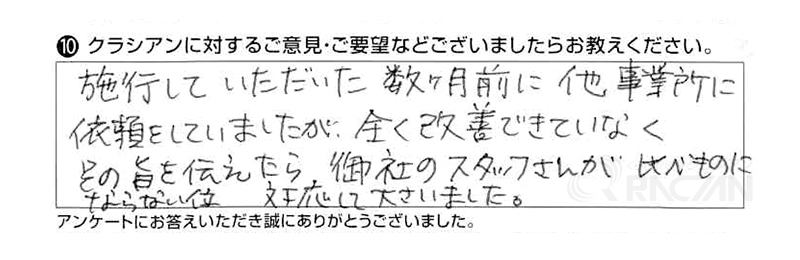 ⑩ クラシアンに対するご意見・ご要望などございましたらお教えください。
施行して いただいた 数ヶ月前に 他 事業所に
依頼をしていましたが、全く改善できていなく
その旨を伝えたら、御社のスタッフさんが 比べものに
ならない位 対応して 下さいました。
アンケートにお答えいただき誠にありがとうございました。
QRACIAN